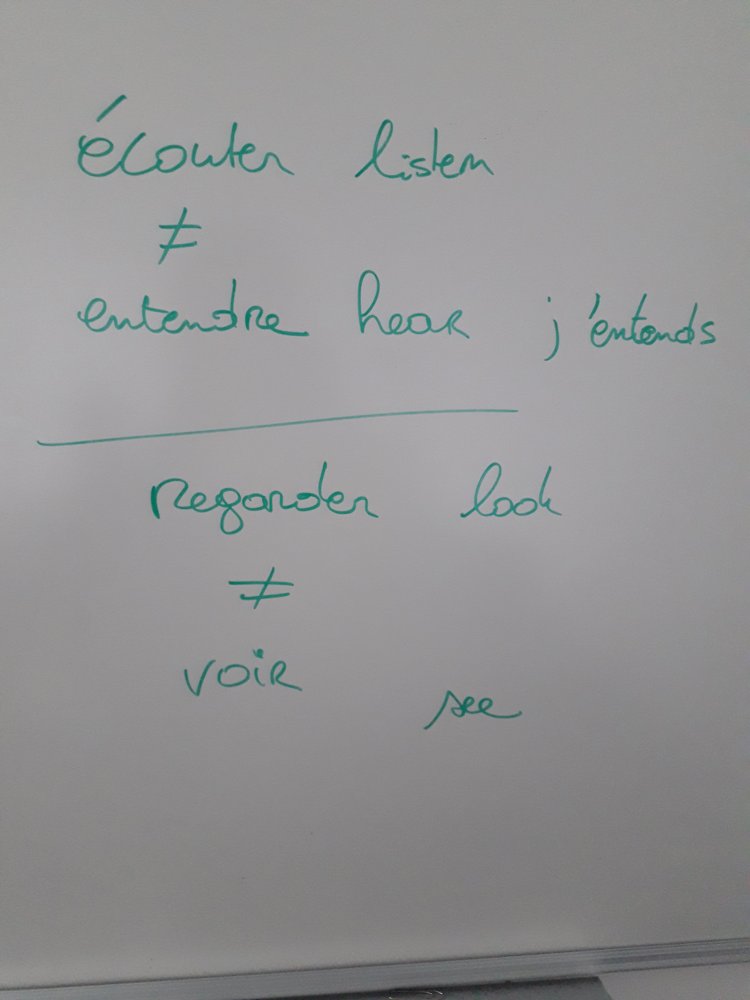 écouter listen
≠
entendre hear j'entends
regarder look
≠
voir
see